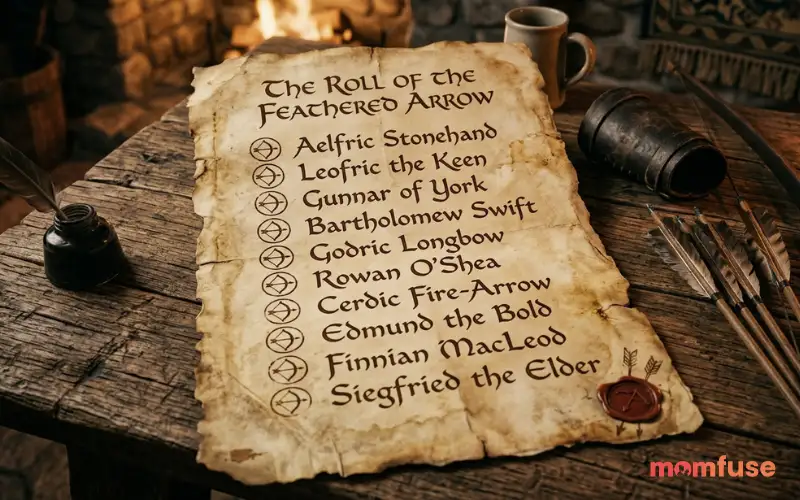 The Roll of the
Feathered Arrow
Aelfric Stonehand
Leofric the Keen
Gunnar of York
Bartholomew Swift
Godric Longbow
Rowan O'Shea
Cerdic Fire-Arrow
Edmund the Bold
Finnian MacLeod
Siegfried the Elder
momfuse